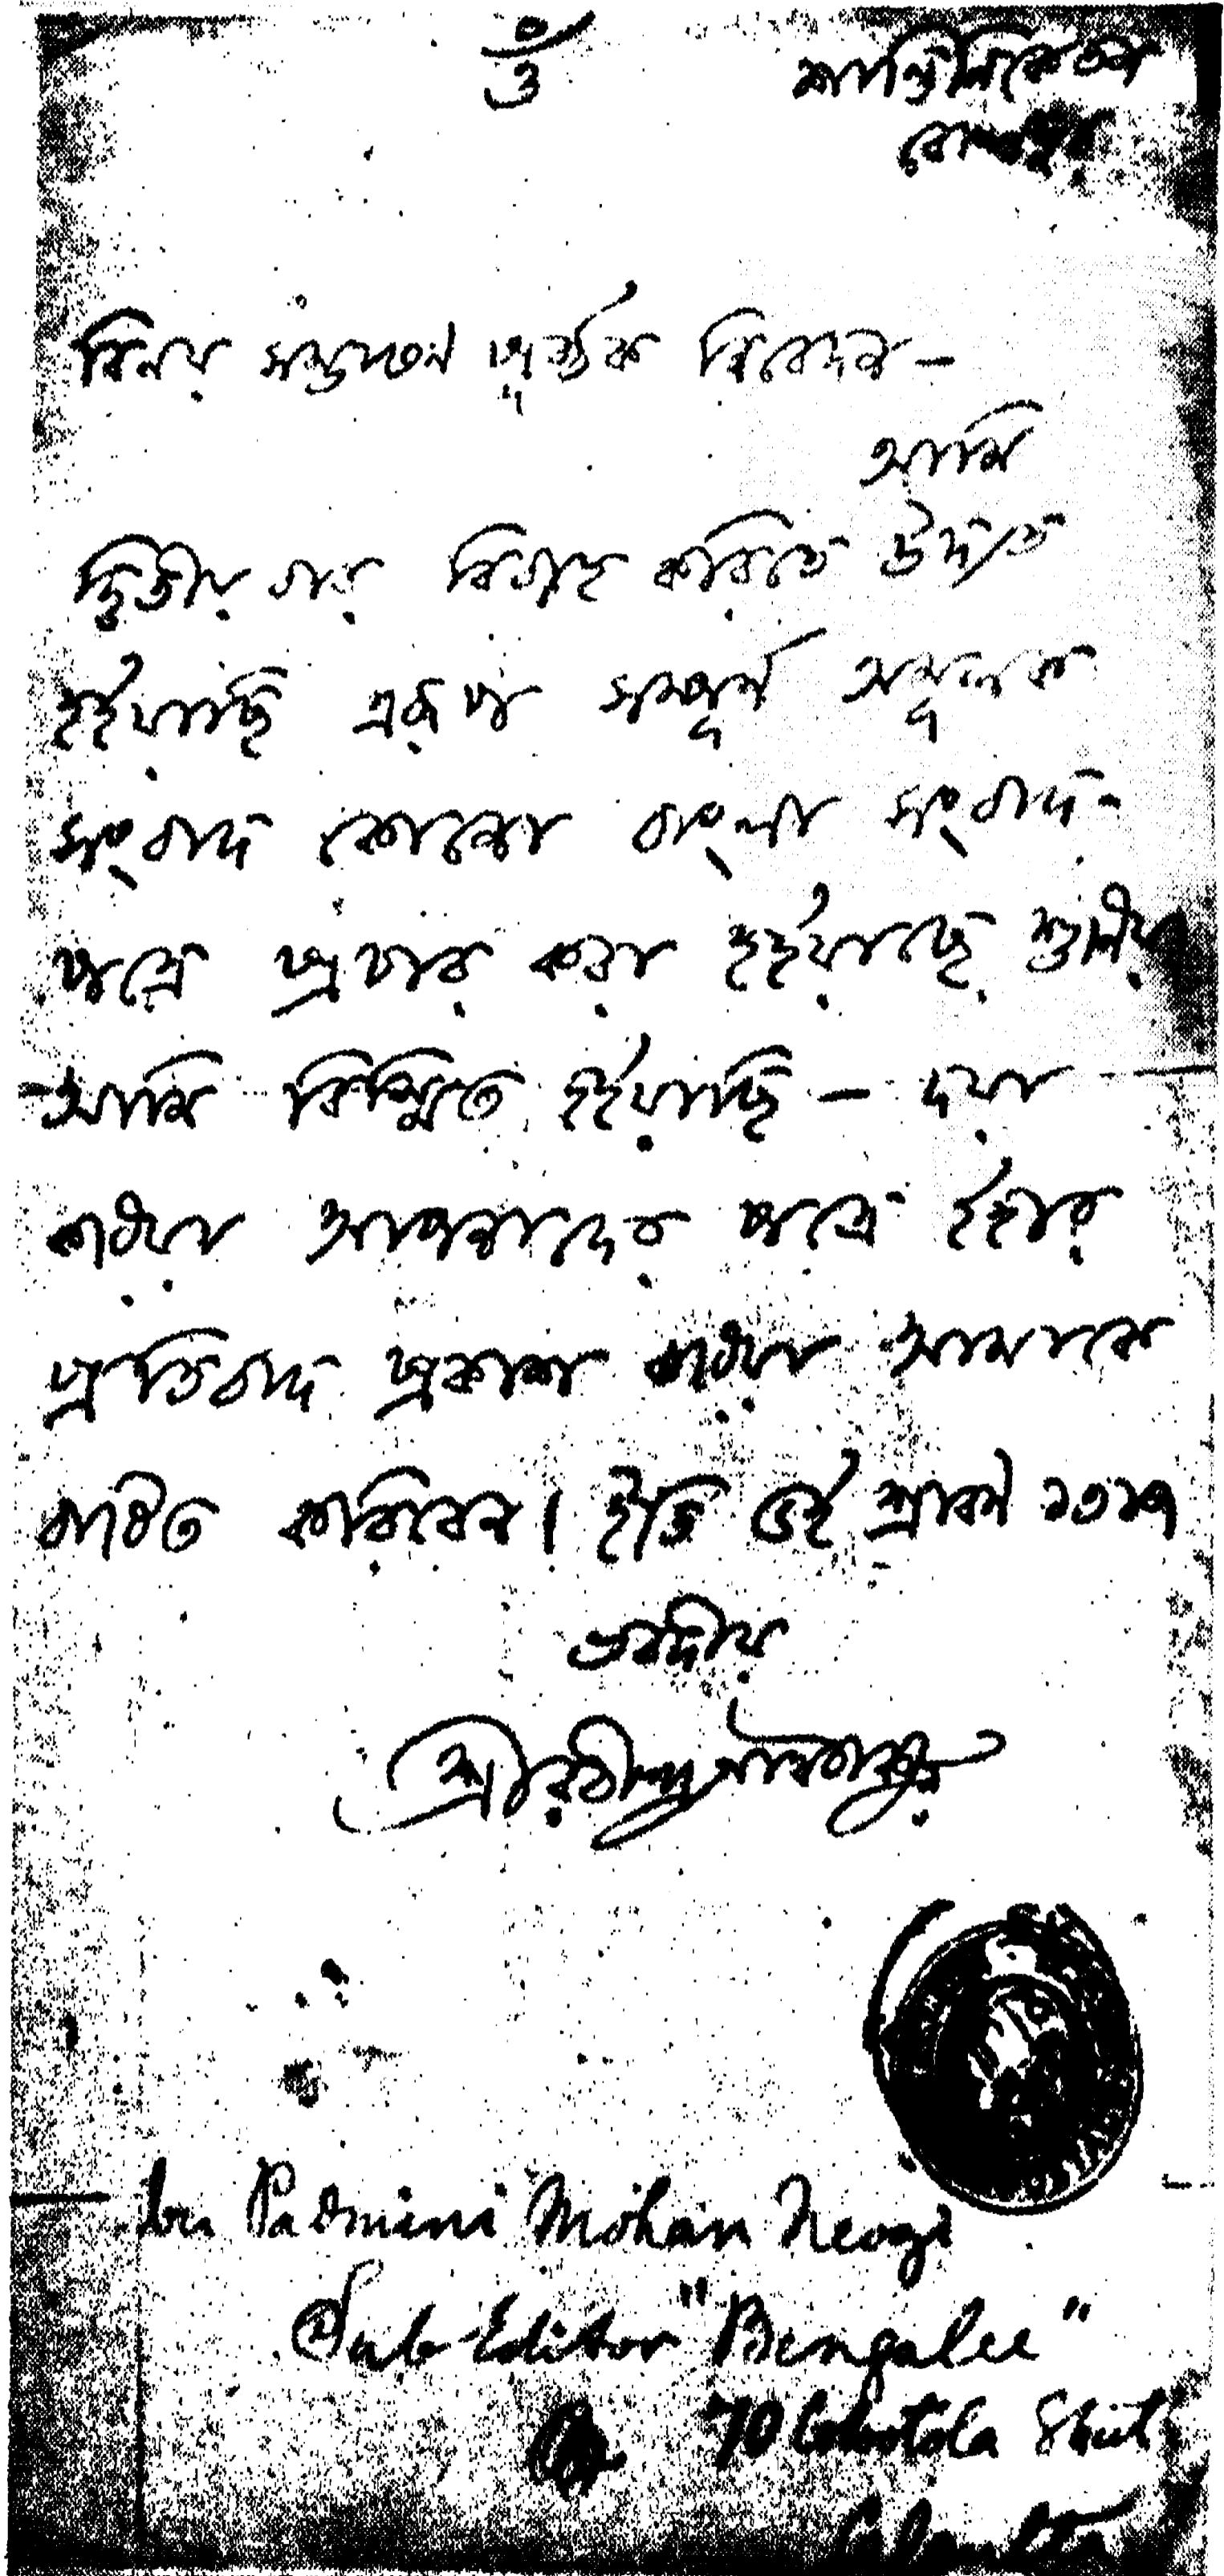 ওঁ
শান্তিনিকেতন
বোলপুর
বিনয় সম্ভাষণ পূর্ব্বক নিবেদন —
আমি
দ্বিতীয় বার বিবাহ করিতে উদ্যত
হইয়াছি এরূপ সম্পূর্ণ অমূলক
সংবাদ কোনো বাংলা সংবাদ
পত্রে প্রচার করা হইয়াছে শুনিয়া
আমি বিস্মিত হইয়াছি — দয়া
করিয়া আপনাদের পত্রে ইহার
প্রতিবাদ প্রকাশ করিয়া আমাকে
বাধিত করিবেন। ইতি ৬ই শ্রাবণ ১৩১৭
ভবদীয়
শ্রীরবীন্দ্রনাথ ঠাকুর
Padmini Mohan Neogi
Sub-Editor "Bengalee"
70 Colootola Street
Calcutta